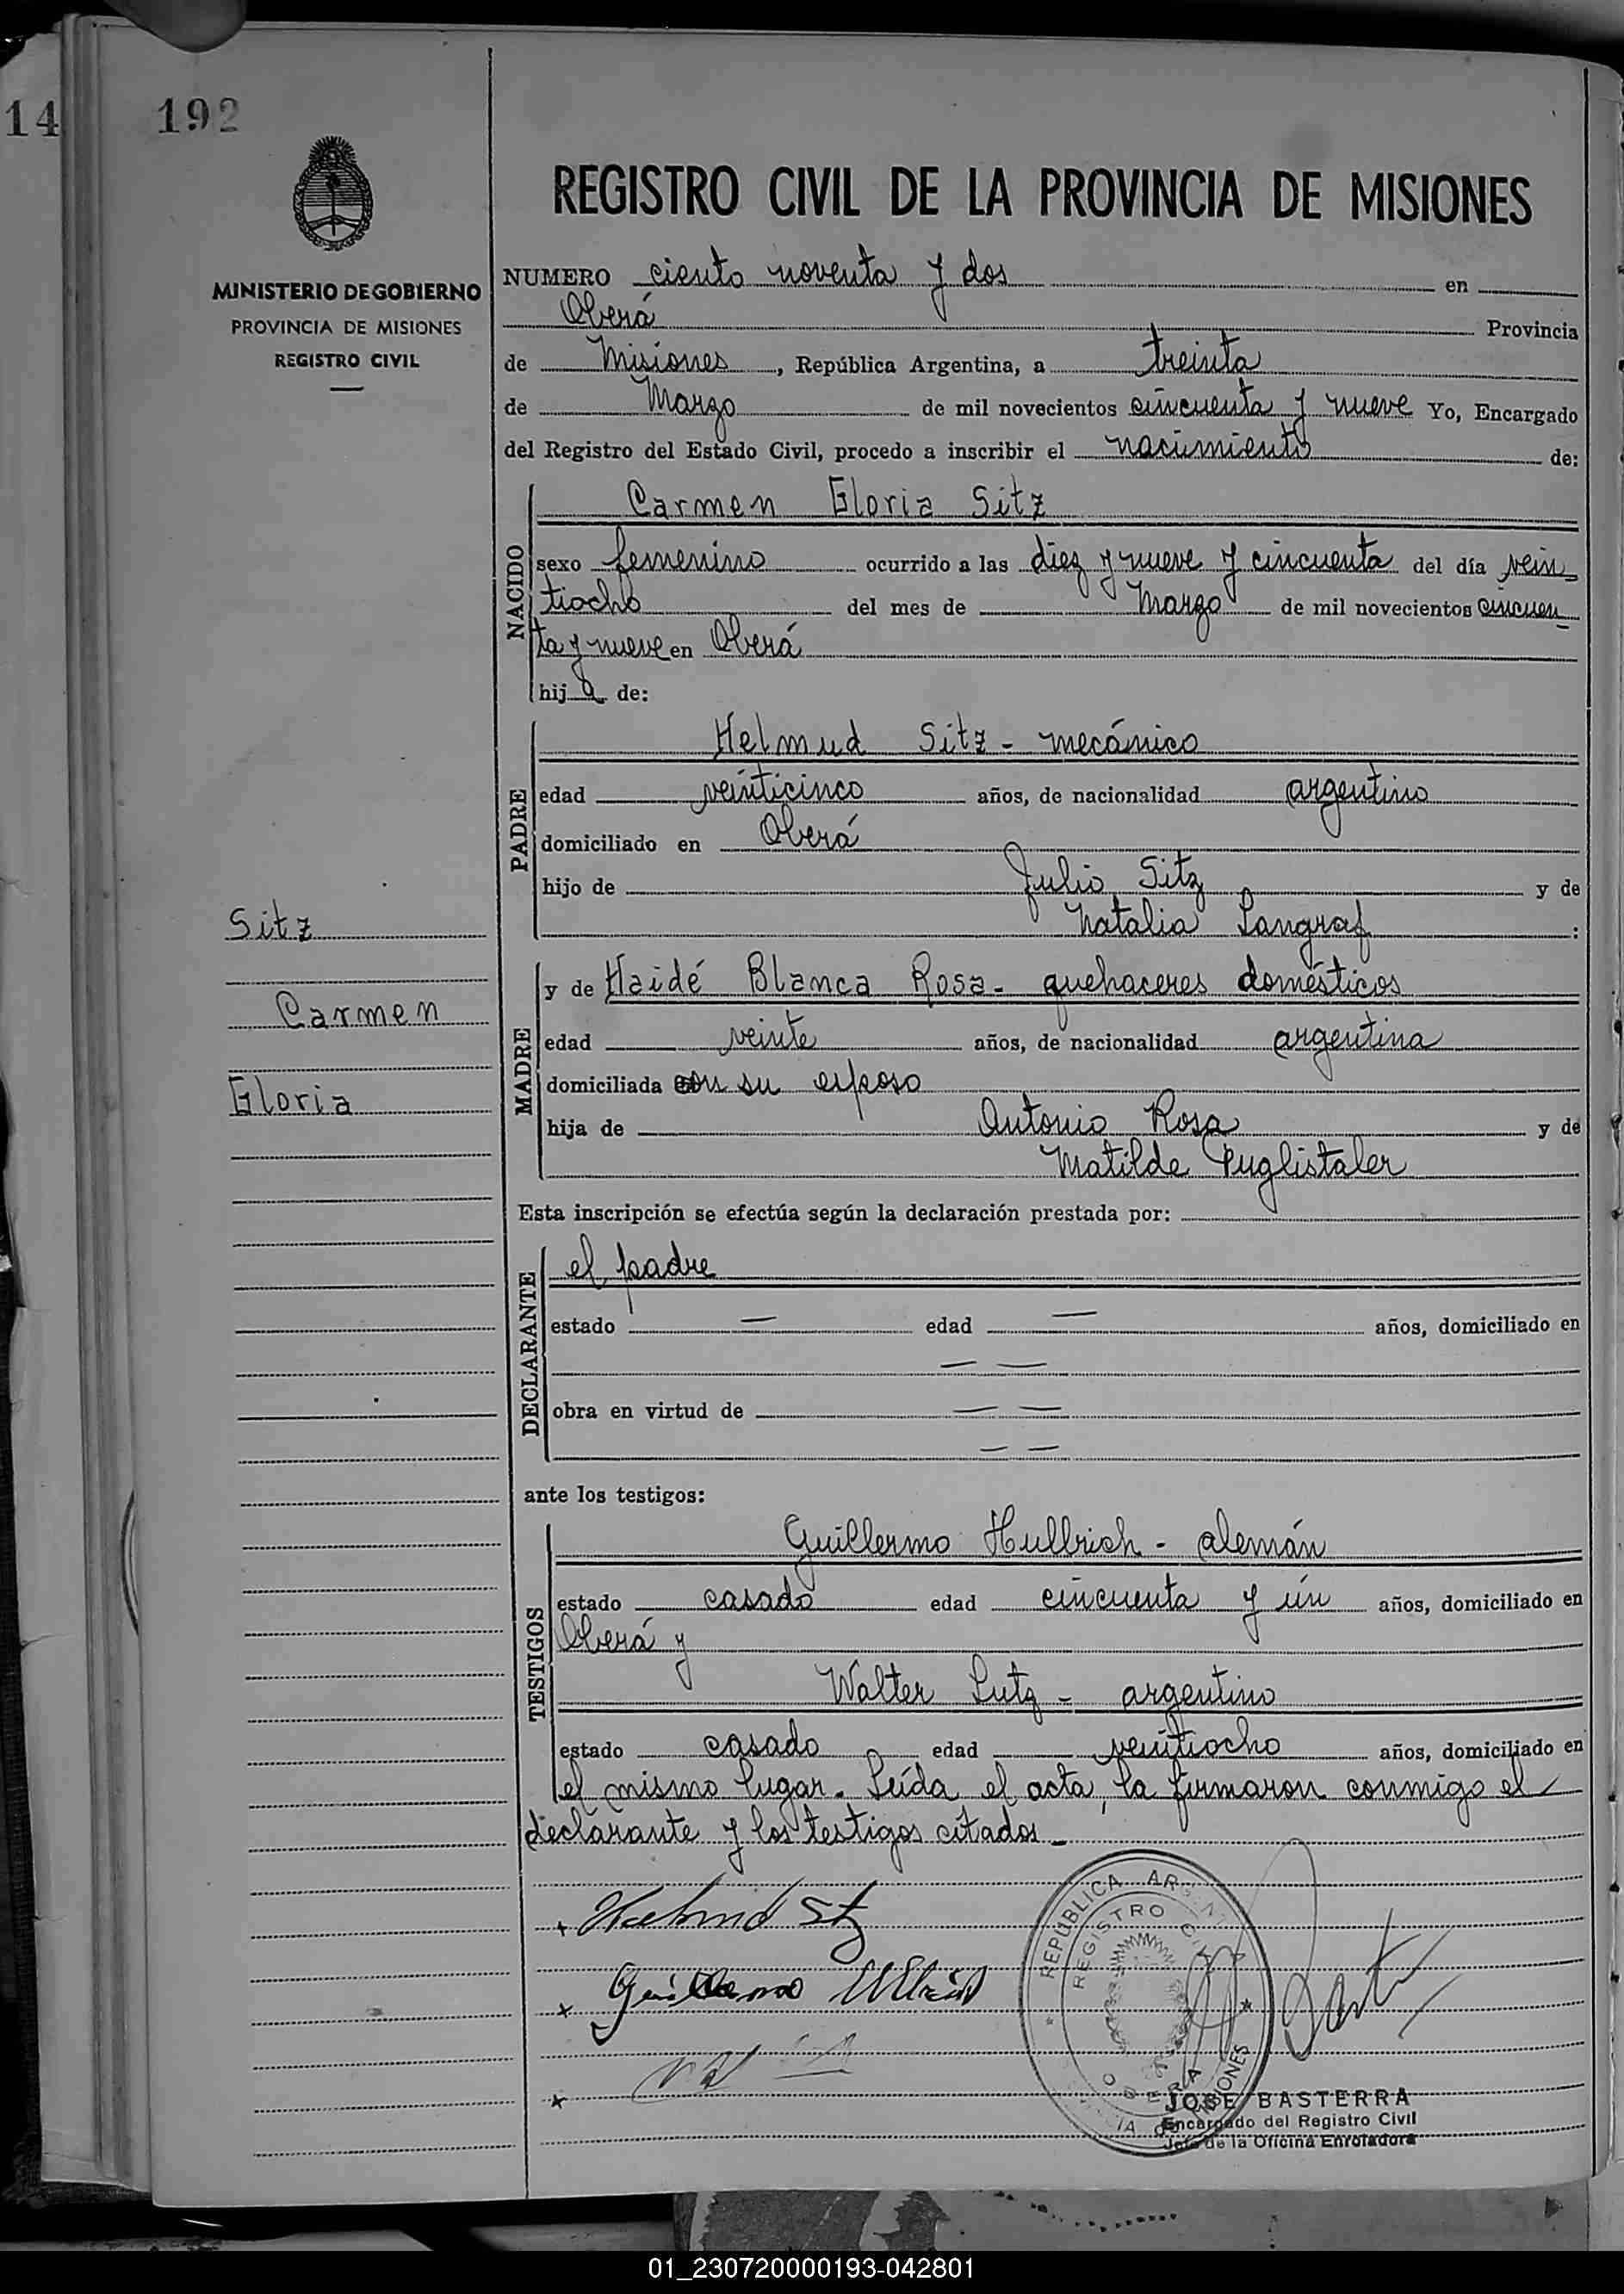 14
192
MINISTERIO DE GOBIERNO
PROVINCIA DE MISIONES
REGISTRO CIVIL
Sitz
Carmen
Gloria
REGISTRO CIVIL DE LA PROVINCIA DE MISIONES
NUMERO ciento noventa y dos en
Oberá Provincia
de Misiones, República Argentina, a treinta
de Marzo de mil novecientos cincuenta y nueve Yo, Encargado
del Registro del Estado Civil, procedo a inscribir el nacimiento de:
NACIDO
Carmen Gloria Sitz
sexo femenino ocurrido a las diez y nueve y cincuenta del día vein
tiocho del mes de Marzo de mil novecientos cincuen
ta y nueve en Oberá
hija de:
PADRE
Helmud Sitz - mecánico
edad veinticinco años, de nacionalidad argentino
domiciliado en Oberá
hijo de Julio Sitz y de
Natalia Langraf :
MADRE
y de Haidé Blanca Rosa - quehaceres domésticos
edad veinte años, de nacionalidad argentina
domiciliada con su esposo
hija de Antonio Rosa y de
Matilde Puglistaler
Esta inscripción se efectúa según la declaración prestada por:
DECLARANTE
el padre
estado — edad — años, domiciliado en
— —
obra en virtud de — —
— —
ante los testigos:
TESTIGOS
Guillermo Hullrich - alemán
estado casado edad cincuenta y un años, domiciliado en
Oberá y
Walter Lutz - argentino
estado casado edad veintiocho años, domiciliado en
el mismo lugar. Leída el acta, la firmaron conmigo el
declarante y los testigos citados -
Helmud Sitz
Guillermo Ullrich
REPÚBLICA ARGENTINA
REGISTRO CIVIL
OBERA
PROVINCIA DE MISIONES
JOSE BASTERRA
Encargado del Registro Civil
Jefe de la Oficina Enroladora
01_230720000193-042801